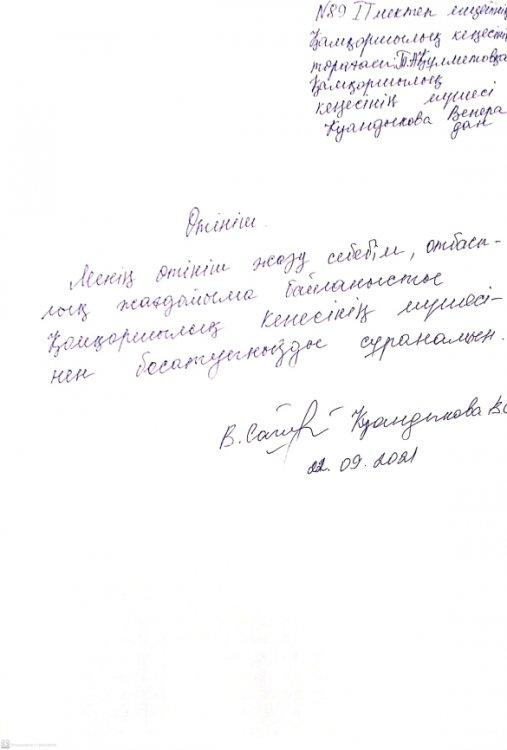 N89 IT мектеп лицейінің
Қамқоршылық кеңестің
төрағасы
Қамқоршылық
кеңесінің мүшесі
Куандыкова Венера
дан
Өтініш.
Менің өтініш жазу себебім, отбасы-
лық жағдайыма байланысты
Қамқоршылық кеңесінің мүшесі-
нен босатуыңызды сұранамын.
Куандыкова
22. 09. 2021